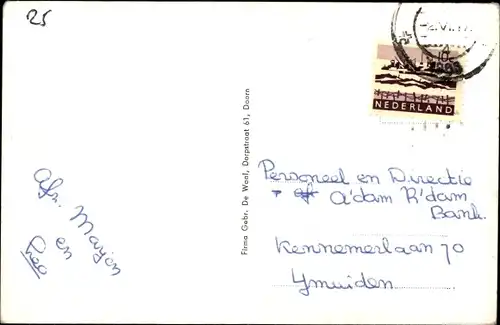 25
Afz. Marjan
en
Firma Gebr. De Waal, Dorpstraat 61, Doorn
NEDERLAND
Personeel en Directie
A'dam R'dam
Bank.
Kennemerlaan 70
Ymuiden